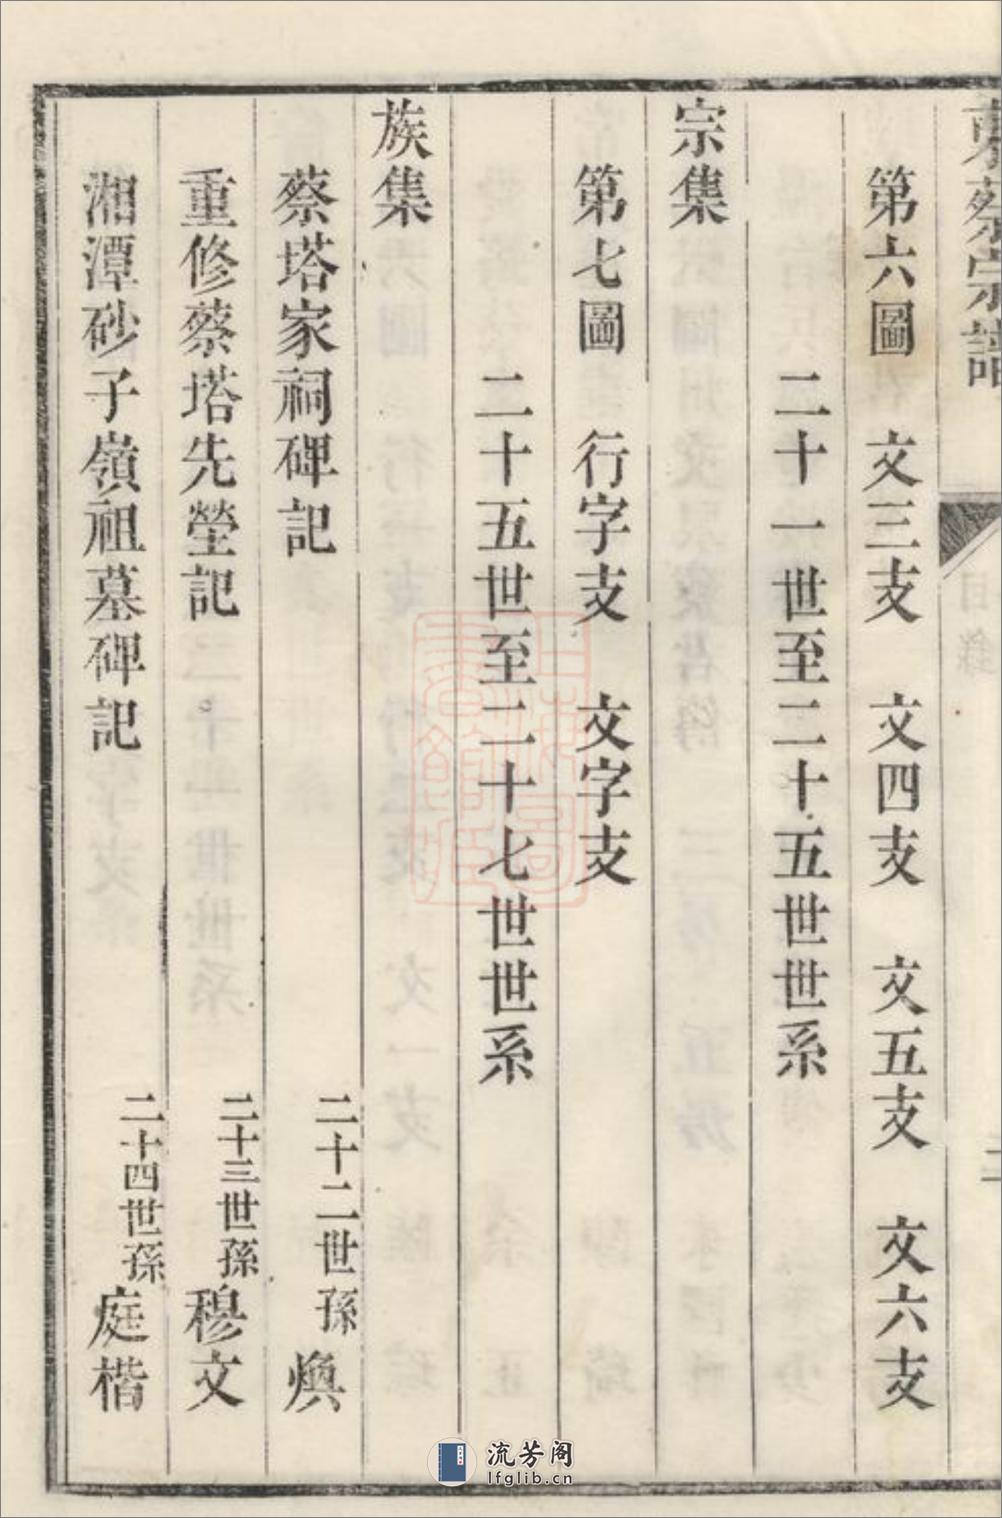 東蔡宗譜
目錄
二
第六圖 文三支 文四支 文五支 文六支
二十一世至二十五世世系
宗集
第七圖 行字支 文字支
二十五世至二十七世世系
族集
蔡塔家祠碑記 二十二世孫 煥
重修蔡塔先塋記 二十三世孫 穆文
湘潭砂子嶺祖墓碑記 二十四世孫 庭楷
流芳阁
lfglib.cn